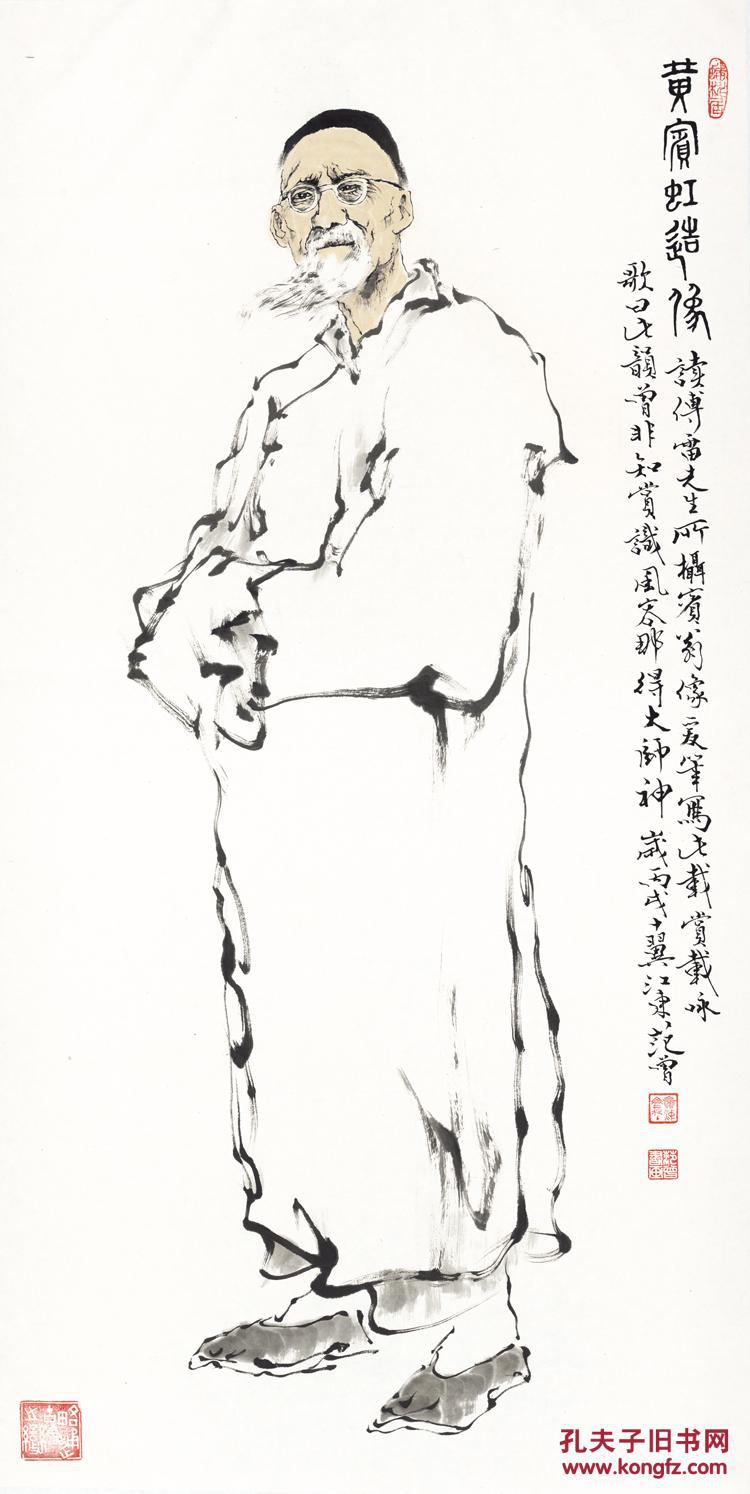 黄賓虹造像
讀傅雷先生所攝賓翁像爰筆寫此載賞載咏
歌曰此韻曾非知賞識風容那得大師神 歲丙戌十翼江東范曾
范曾
孔夫子旧书网
www.kongfz.com